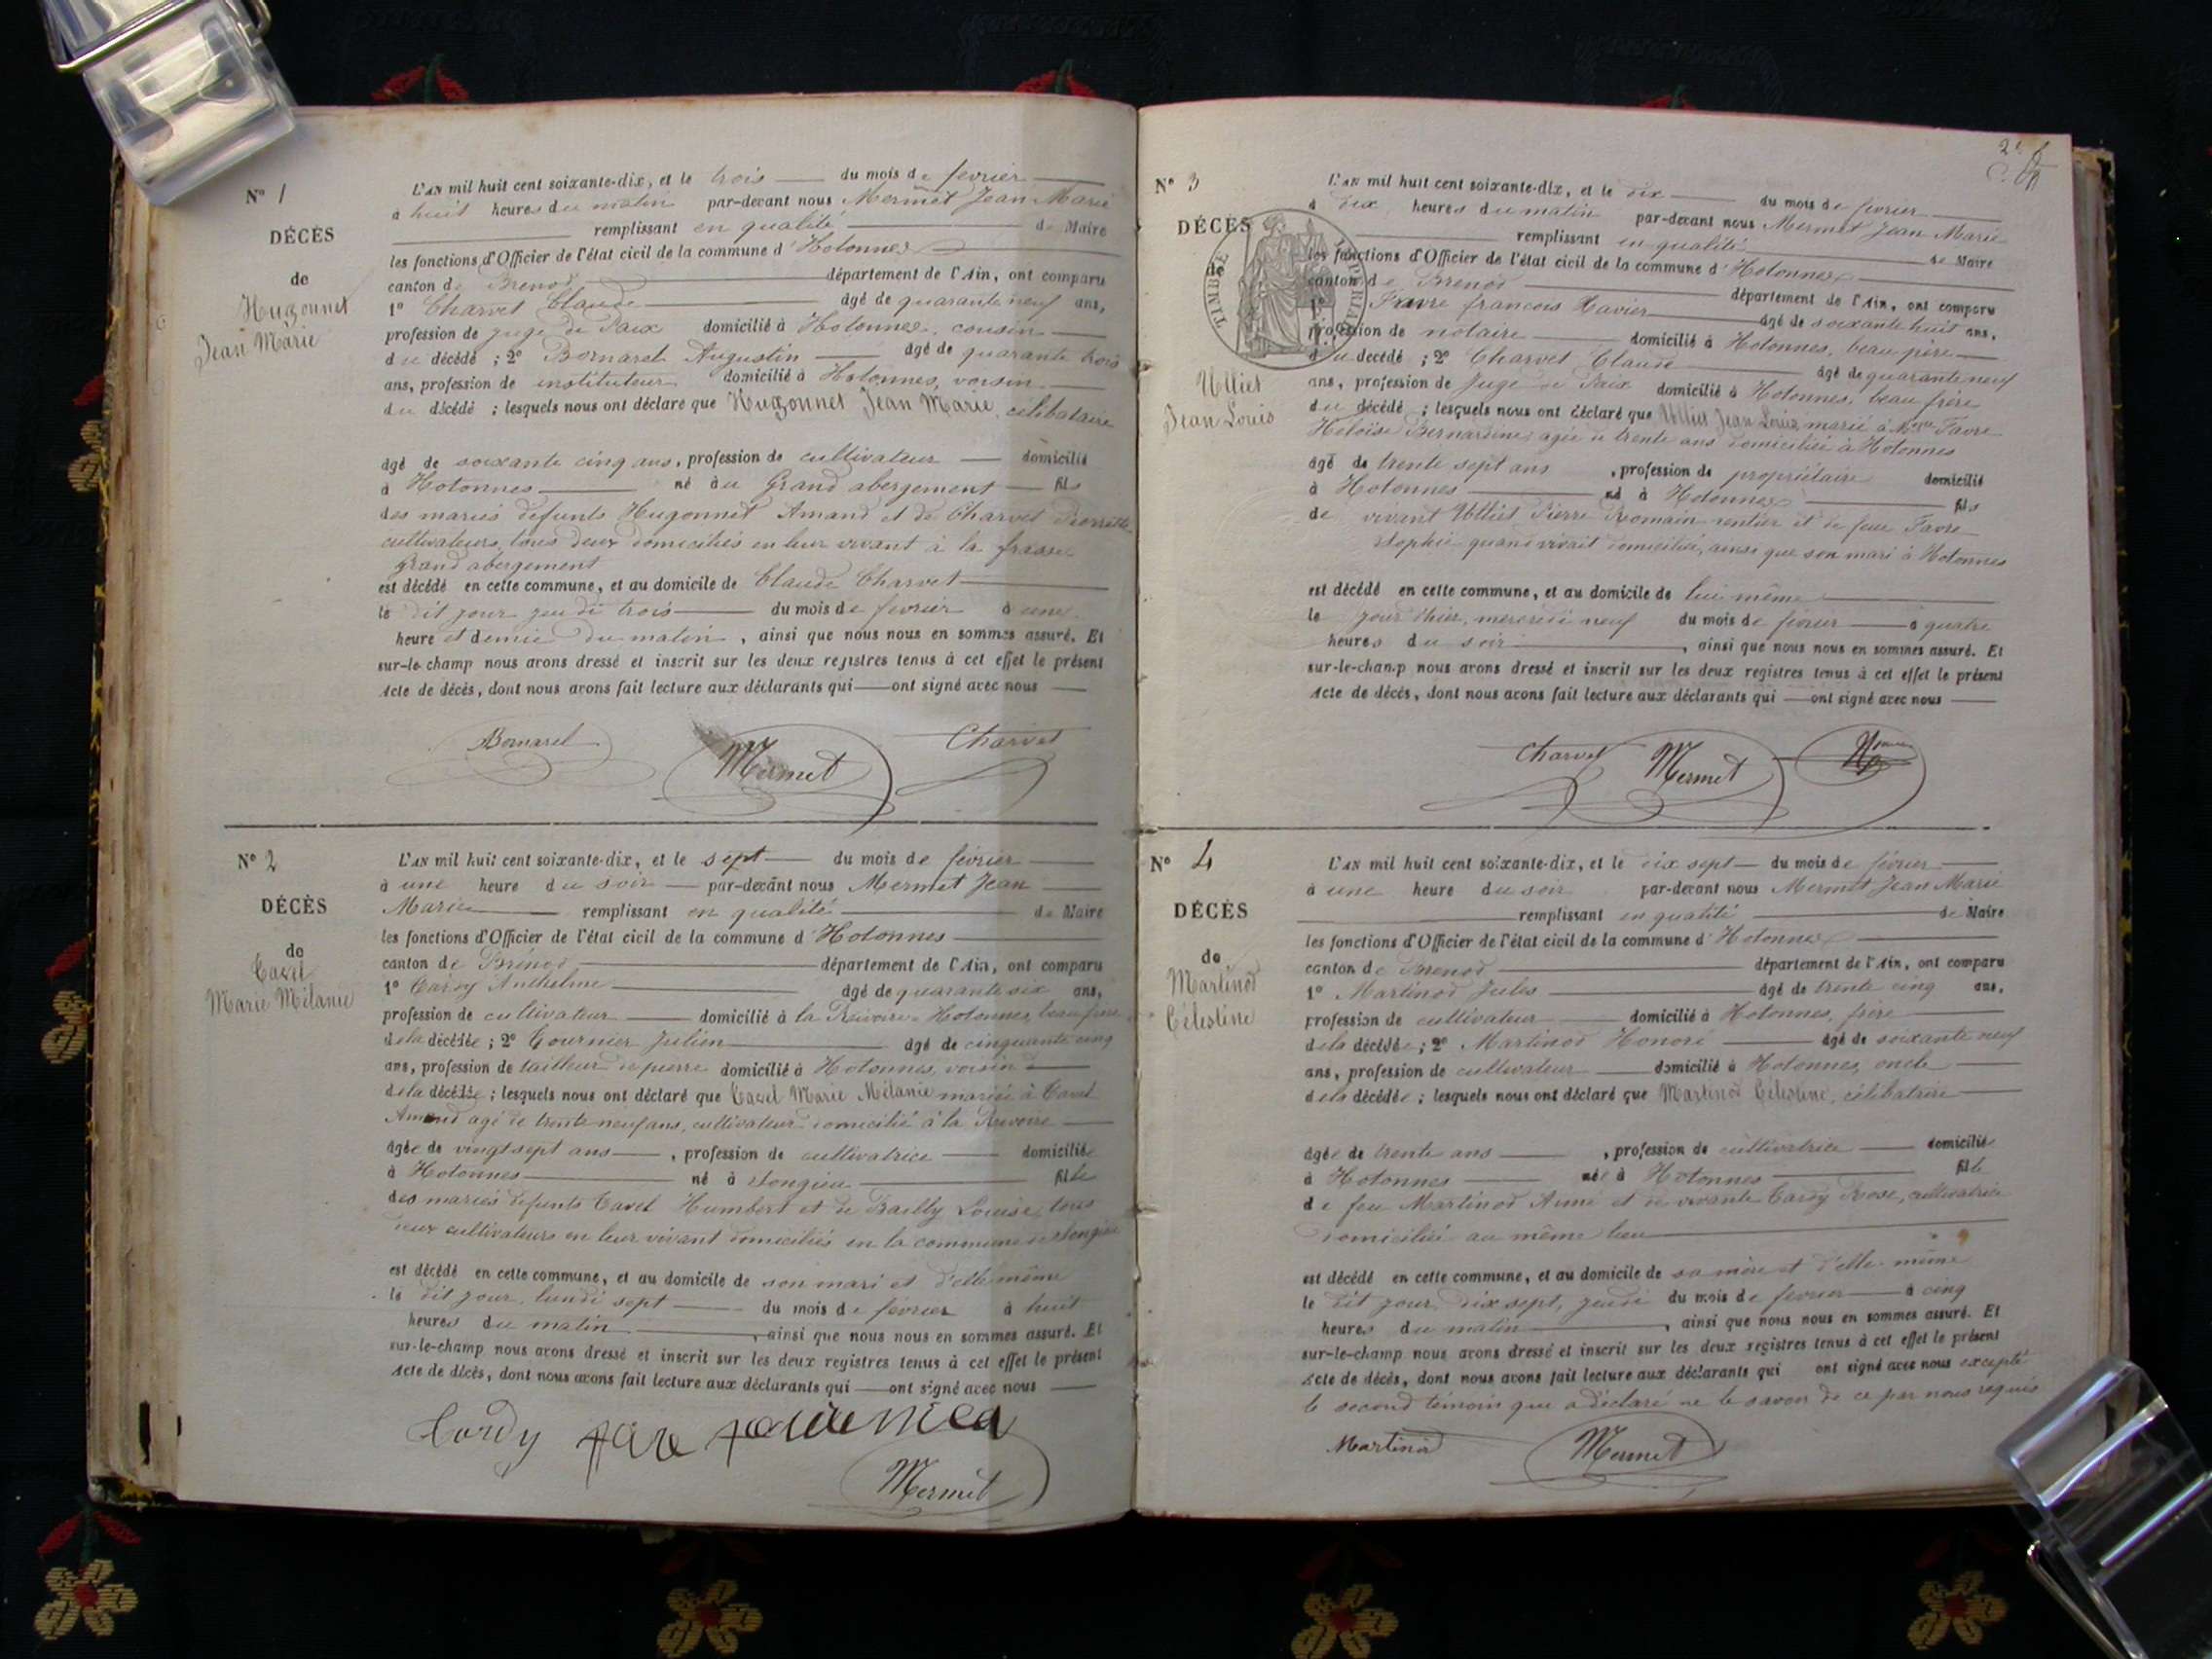 N° 1
DÉCÈS
de
Hugonnet
Jean Marie
L'AN mil huit cent soixante-dix, et le trois du mois de février
à huit heures du matin par-devant nous Mermet Jean Marie
remplissant en qualité de Maire
les fonctions d'Officier de l'état civil de la commune d'Hotonnes
canton de Brenod département de l'Ain, ont comparu
1° Charvet Claude âgé de quarante neuf ans,
profession de juge de Paix domicilié à Hotonnes, cousin
du décédé ; 2° Bornarel Augustin âgé de quarante trois
ans, profession de instituteur domicilié à Hotonnes, voisin
du décédé ; lesquels nous ont déclaré que Hugonnet Jean Marie, célibataire
âgé de soixante cinq ans, profession de cultivateur domicilié
à Hotonnes né au Grand abergement fils
des mariés défunts Hugonnet Amand et de Charvet
cultivateurs, tous deux domiciliés en leur vivant à la frasse
Grand abergement
est décédé en cette commune, et au domicile de Claude Charvet
le dit jour jeudi trois du mois de février à une
heure et demie du matin, ainsi que nous nous en sommes assuré. Et
sur-le-champ nous avons dressé et inscrit sur les deux registres tenus à cet effet le présent
Acte de décès, dont nous avons fait lecture aux déclarants qui ont signé avec nous
Bornarel Mermet Charvet
N° 2
DÉCÈS
de
Tavel
Marie Mélanie
L'AN mil huit cent soixante-dix, et le sept du mois de février
à une heure du soir par-devant nous Mermet Jean
Marie remplissant en qualité de Maire
les fonctions d'Officier de l'état civil de la commune d'Hotonnes
canton de Brénod département de l'Ain, ont comparu
1° Cardy Anthelme âgé de quarante six ans,
profession de cultivateur domicilié à la Rivoire Hotonnes, beau frère
de la décédée ; 2° Tournier Julien âgé de cinquante cinq
ans, profession de tailleur de pierre domicilié à Hotonnes, voisin
de la décédée ; lesquels nous ont déclaré que Tavel Marie Mélanie mariée à Tavel
Amand agé de trente neuf ans, cultivateur domicilié à la Rivoire
âgée de vingt sept ans, profession de cultivatrice domiciliée
à Hotonnes né à Songieu fille
des mariés défunts Tavel Humbert et de Bailly Louise, tous
deux cultivateurs en leur vivant domiciliés en la commune de Songieu
est décédé en cette commune, et au domicile de son mari et d'elle même
le dit jour, lundi sept du mois de février à huit
heures du matin, ainsi que nous nous en sommes assuré. Et
sur-le-champ nous avons dressé et inscrit sur les deux registres tenus à cet effet le présent
Acte de décès, dont nous avons fait lecture aux déclarants qui ont signé avec nous
Cordy
Mermet
2e
N° 3
DÉCÈS
de
TIMBRE IMPÉRIAL
Ulliet
Jean Louis
L'AN mil huit cent soixante-dix, et le dix du mois de février
à dix heures du matin par-devant nous Mermet Jean Marie
remplissant en qualité de Maire
les fonctions d'Officier de l'état civil de la commune d'Hotonnes
canton de Brenod département de l'Ain, ont comparu
1° Favre françois Xavier âgé de soixante huit ans,
profession de notaire domicilié à Hotonnes, beau père
du décédé ; 2° Charvet Claude âgé de quarante neuf
ans, profession de Juge de Paix domicilié à Hotonnes, beau frère
du décédé ; lesquels nous ont déclaré que Ulliet Jean Louis marié à Favre
Héloïse Bernardine, agée de trente ans domiciliée à Hotonnes
âgé de trente sept ans, profession de propriétaire domicilié
à Hotonnes né à Hotonnes fils
de vivant Ulliet Pierre Romain rentier et de feue Favre
Sophie quand vivait domiciliée, ainsi que son mari à Hotonnes
est décédé en cette commune, et au domicile de lui même
le jour d'hier, mercredi neuf du mois de février à quatre
heures du soir, ainsi que nous nous en sommes assuré. Et
sur-le-champ nous avons dressé et inscrit sur les deux registres tenus à cet effet le présent
Acte de décès, dont nous avons fait lecture aux déclarants qui ont signé avec nous
Charvet Mermet
N° 4
DÉCÈS
de
Martinod
Célestine
L'AN mil huit cent soixante-dix, et le dix sept du mois de février
à une heure du soir par-devant nous Mermet Jean Marie
remplissant en qualité de Maire
les fonctions d'Officier de l'état civil de la commune d'Hotonnes
canton de Brenod département de l'Ain, ont comparu
1° Martinod Jules âgé de trente cinq ans,
profession de cultivateur domicilié à Hotonnes, frère
de la décédée ; 2° Martinod Honoré âgé de soixante neuf
ans, profession de cultivateur domicilié à Hotonnes, oncle
de la décédée ; lesquels nous ont déclaré que Martinod Célestine, célibataire
âgée de trente ans, profession de cultivatrice domiciliée
à Hotonnes née à Hotonnes fille
de feu Martinod Aimé et de vivante Cardy Rose, cultivatrice
domiciliée au même lieu
est décédé en cette commune, et au domicile de sa mère et d'elle même
le dit jour, dix sept, jeudi du mois de février à cinq
heures du matin, ainsi que nous nous en sommes assuré. Et
sur-le-champ nous avons dressé et inscrit sur les deux registres tenus à cet effet le présent
Acte de décès, dont nous avons fait lecture aux déclarants qui ont signé avec nous excepté
le second témoin que a déclaré ne le savoir de ce par nous requis
Martinod Mermet